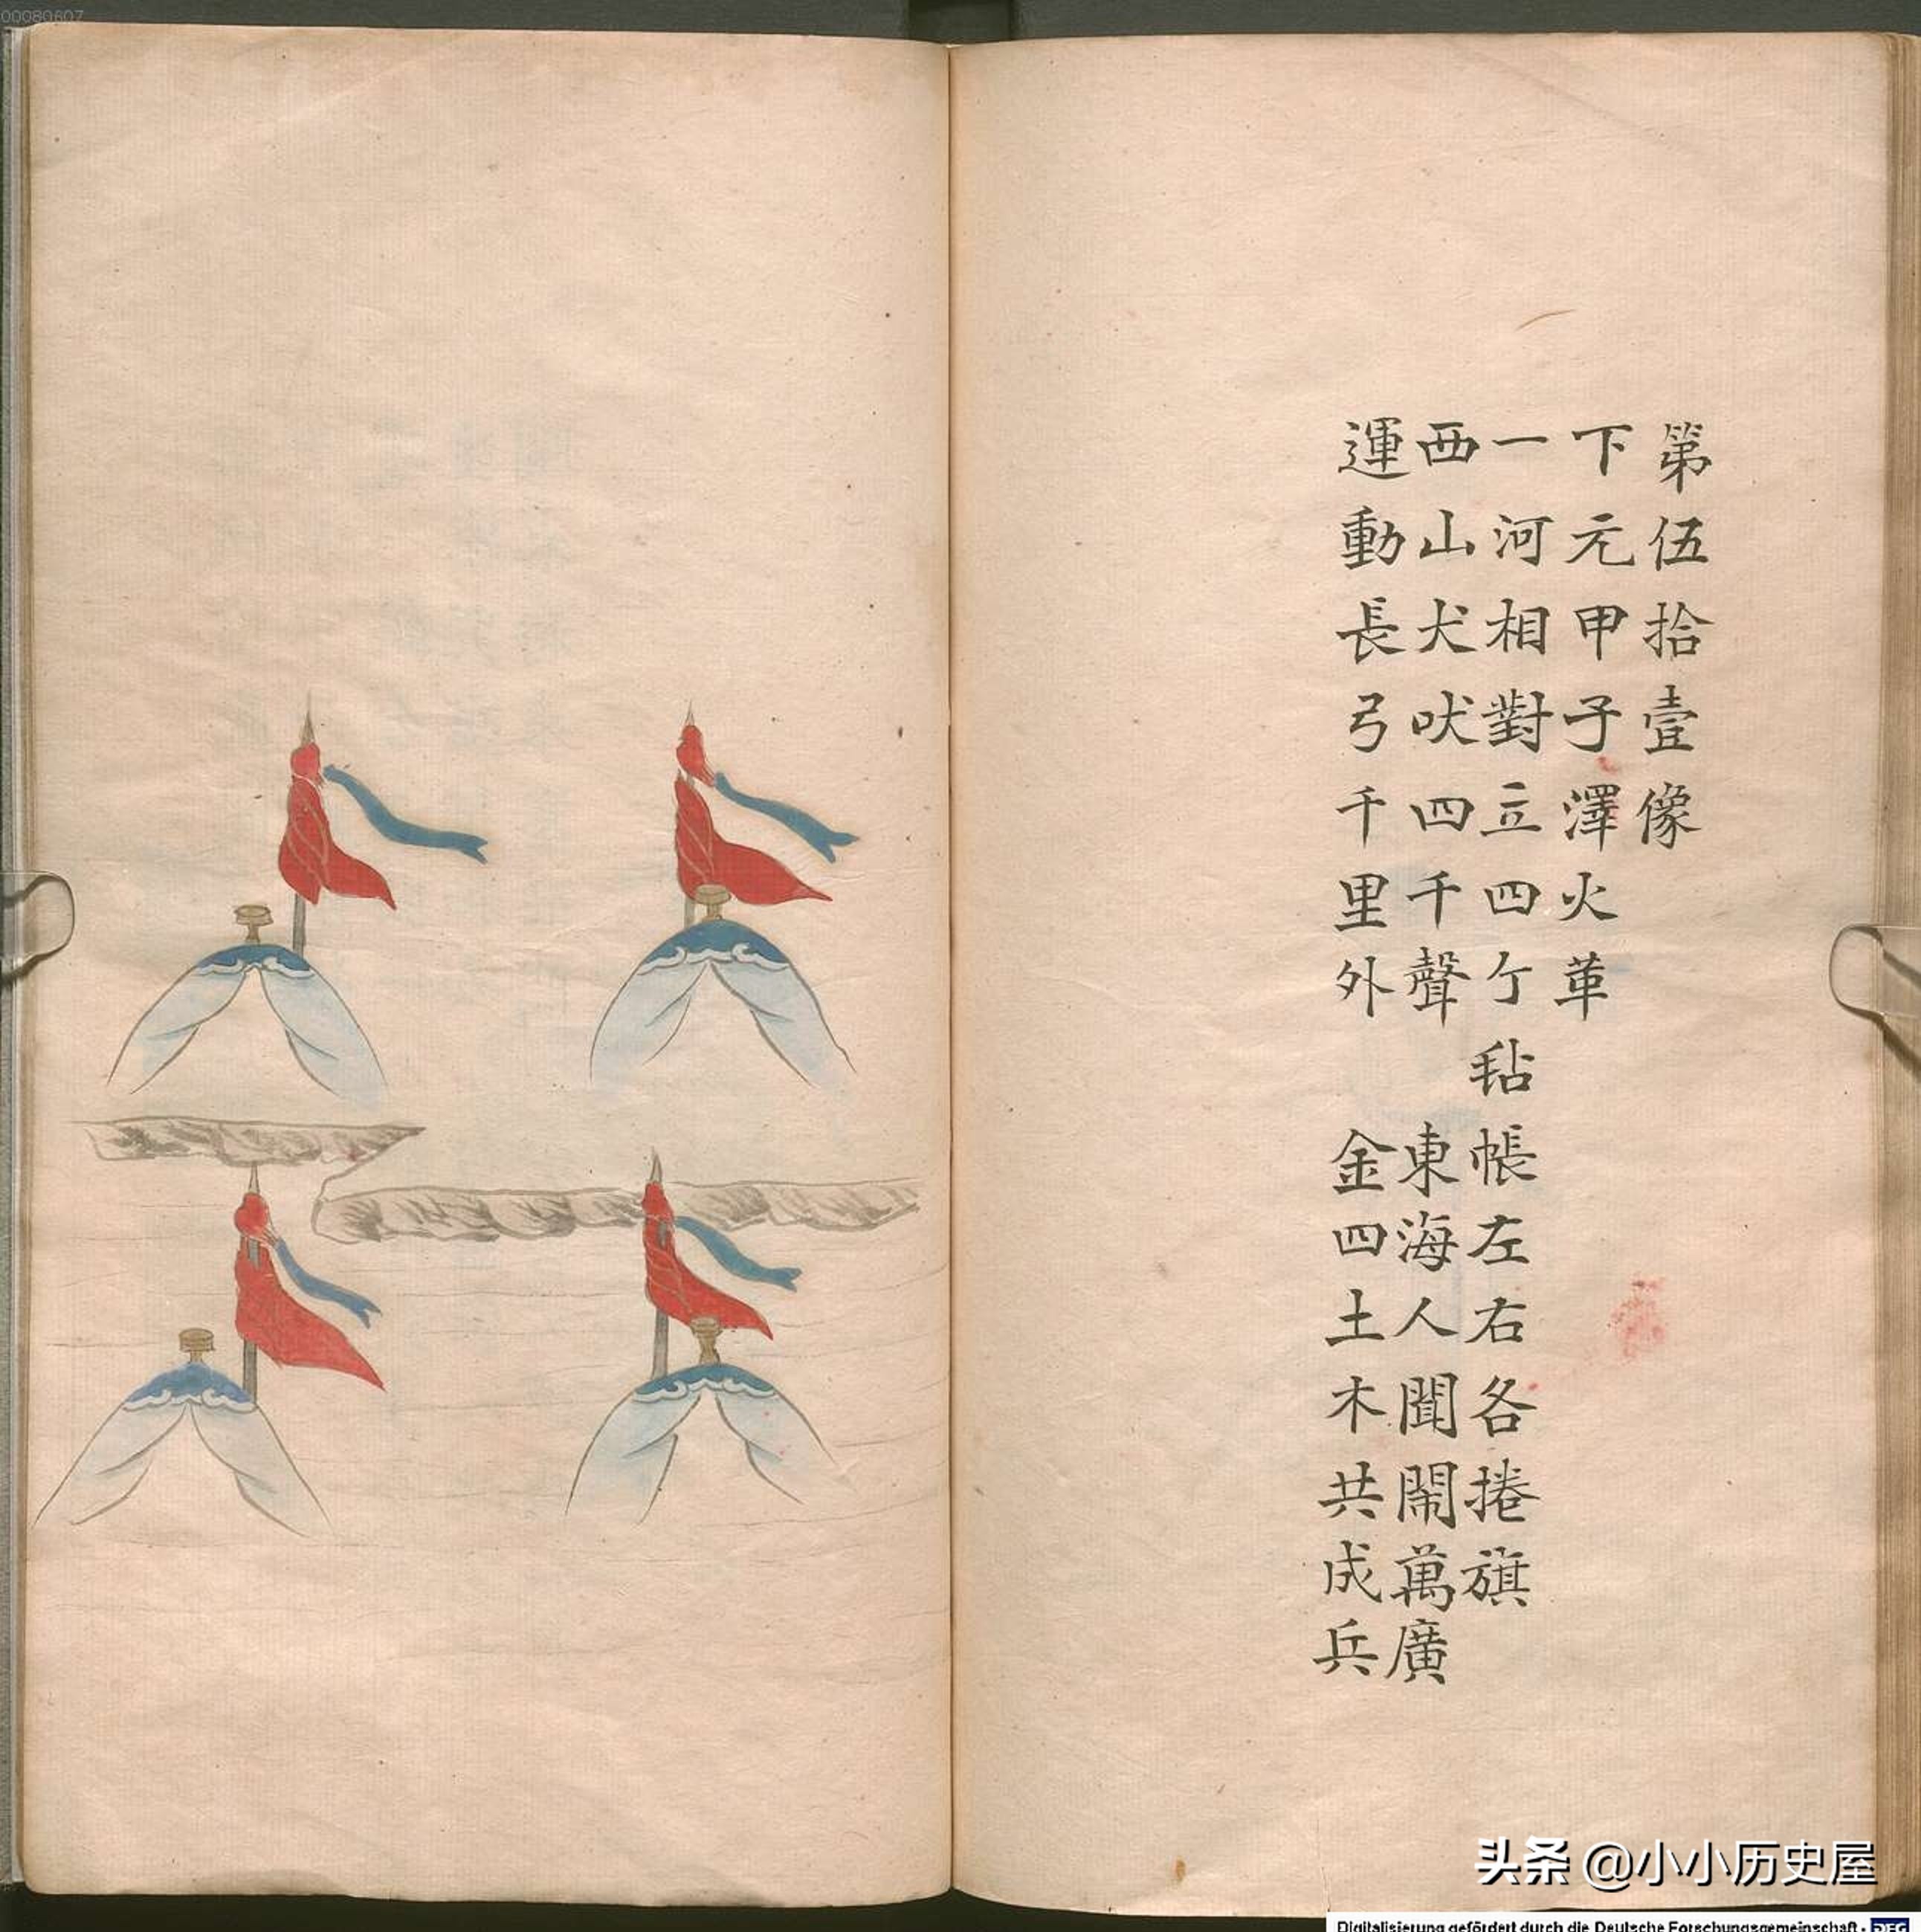 00080607
第伍拾壹像
下元甲子澤火革
一河相對立四个毡帳左右各捲旗
西山犬吠四千聲 東海人聞鬧萬廣
運動長弓千里外 金四土木共成兵
头条 @小小历史屋
Digitalisierung gefördert durch die Deutsche Forschungsgemeinschaft - DFG